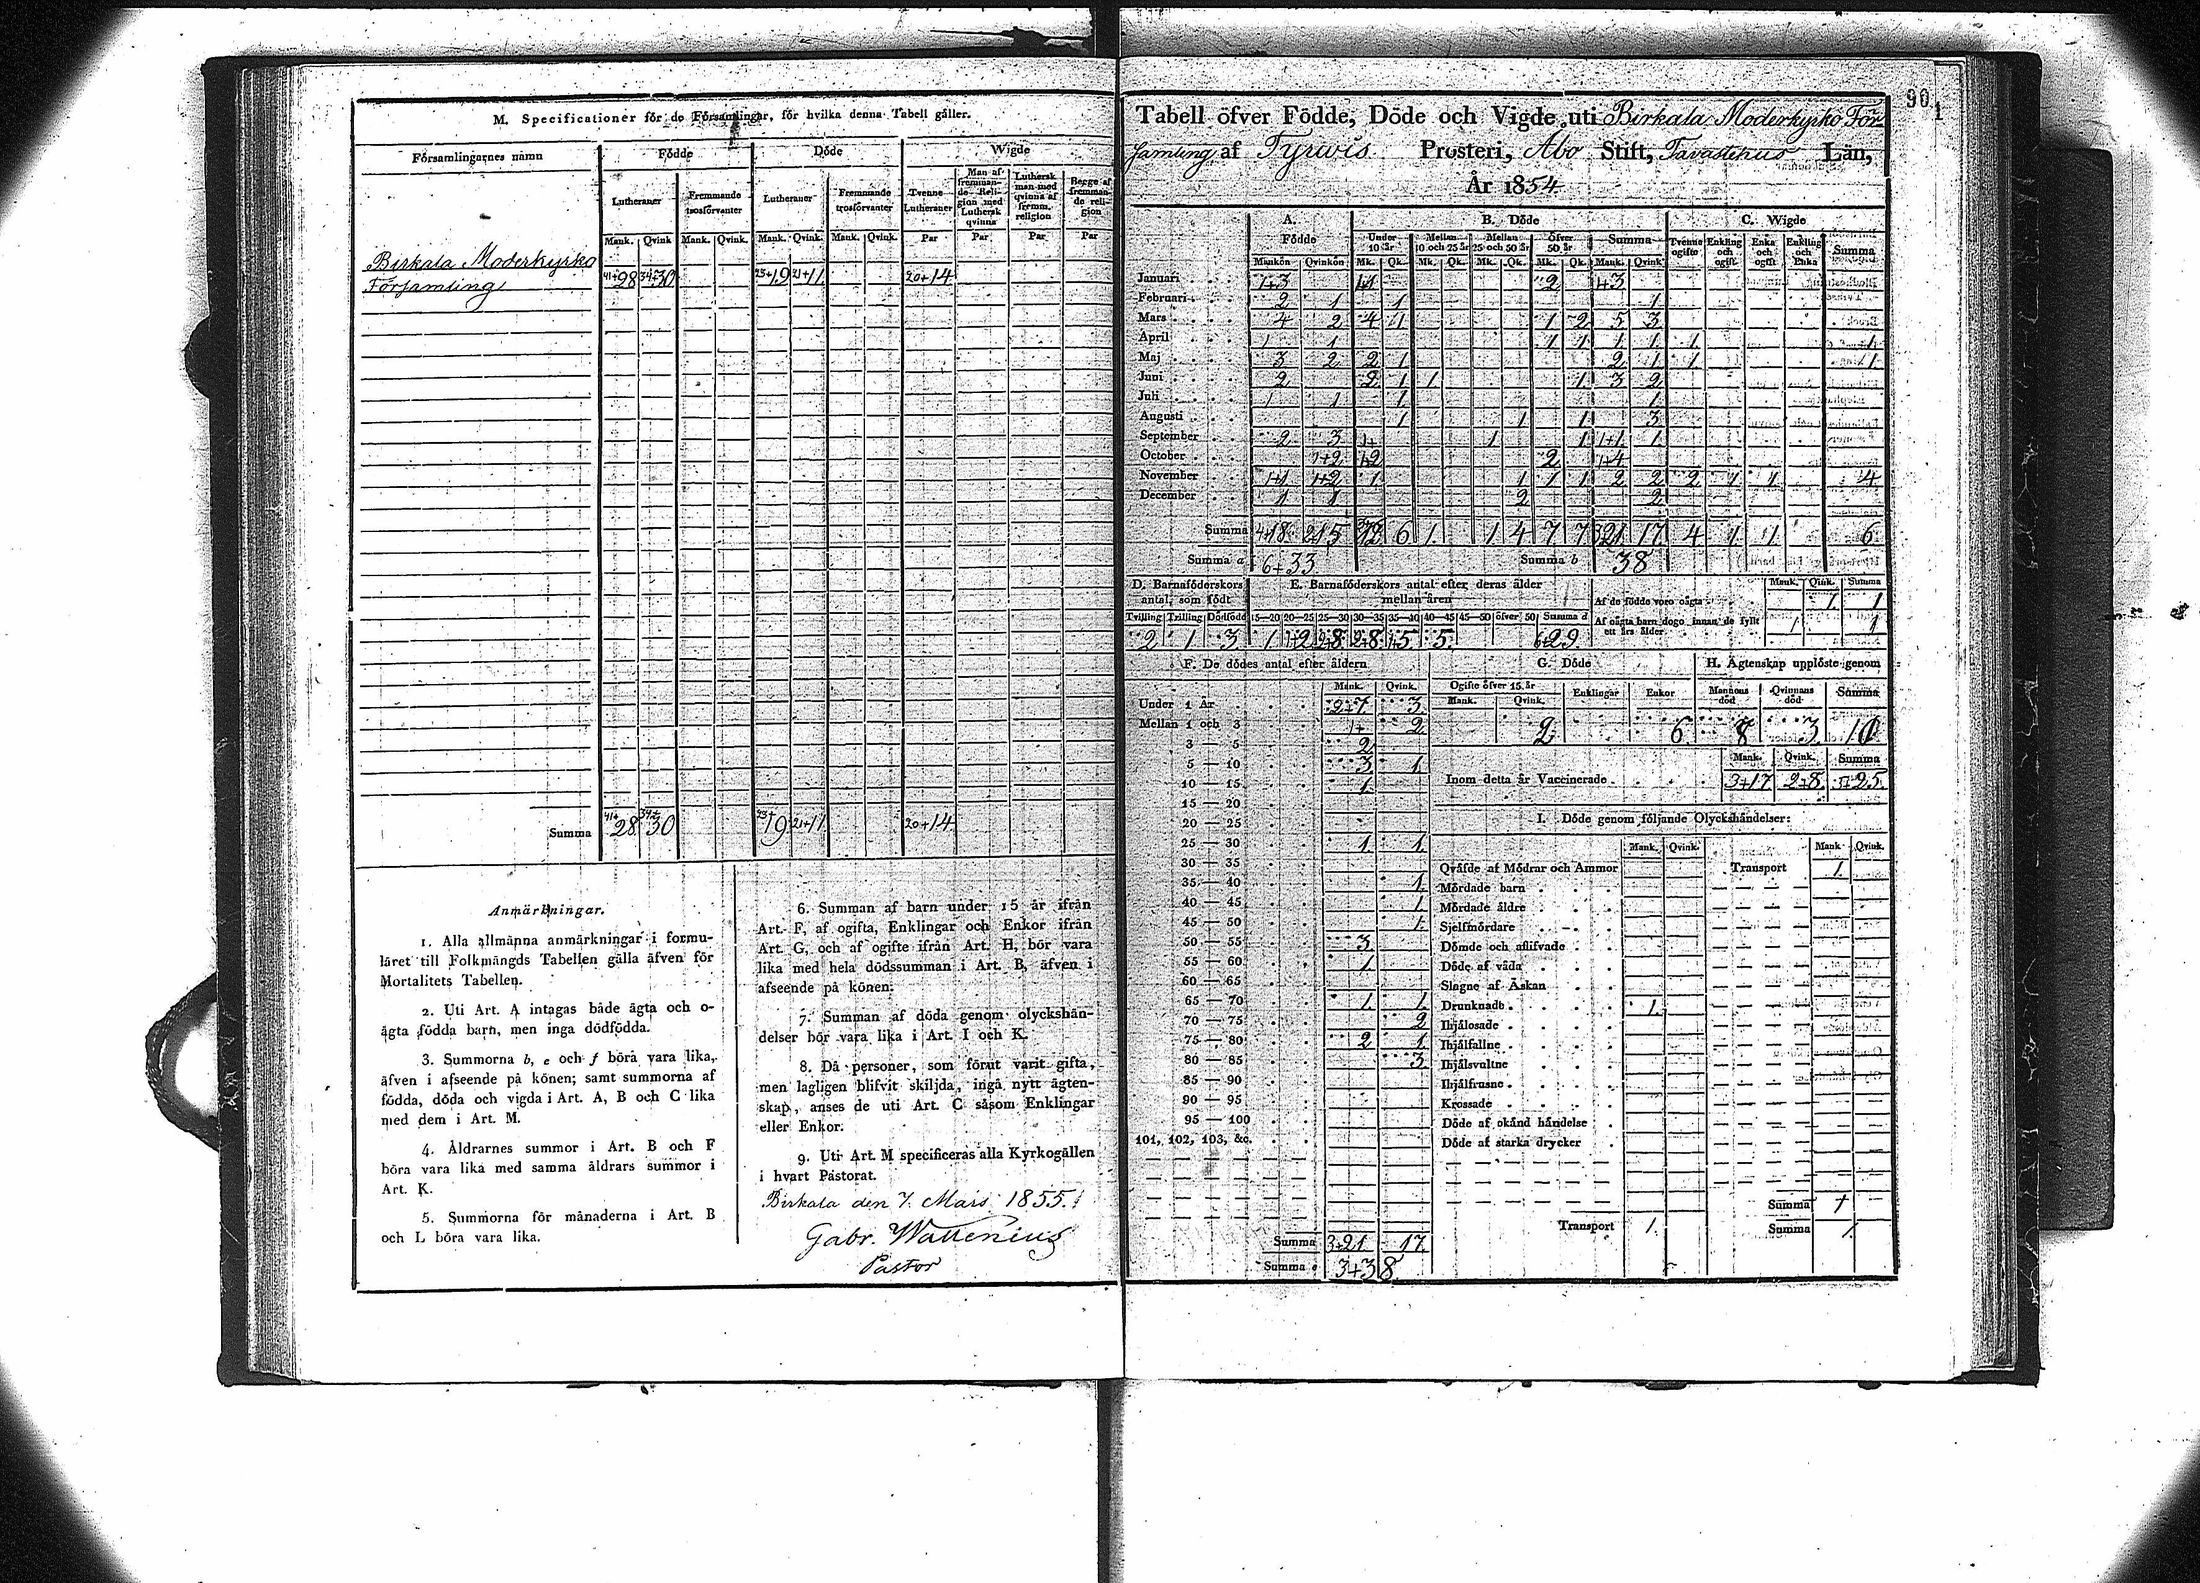 M. Specificationer för de Församlingar, för hvilka denna Tabell gäller.
Församlingarnes namn Födde Döde Wigde
Lutheraner Fremmande trosförvanter Lutheraner Fremmande trosförvanter Tvenne Lutheraner Man af fremmande Religion med Luthersk qvinna Luthersk man med qvinna af fremm. religion Begge af fremmande religion
Mank. Qvink Mank. Qvink. Mank. Qvink. Mank. Qvink. Par Par Par Par
Birkala Moderkyrko
Församling 41+28 34+30 23+19 21+11 20+14
Summa 41+28 34+30 23+19 21+11 20+14
Anmärkningar.
1. Alla allmänna anmärkningar i formu-
läret till Folkmängds Tabellen gälla äfven för
Mortalitets Tabellen.
2. Uti Art. A intagas både ägta och o-
ägta födda barn, men inga dödfödda.
3. Summorna b, e och f böra vara lika,
äfven i afseende på könen; samt summorna af
födda, döda och vigda i Art. A, B och C lika
med dem i Art. M.
4. Åldrarnes summor i Art. B och F
böra vara lika med samma åldrars summor i
Art. K.
5. Summorna för månaderna i Art. B
och L böra vara lika.
6. Summan af barn under 15 år ifrån
Art. F, af ogifta, Enklingar och Enkor ifrån
Art. G, och af ogifte ifrån Art. H, bör vara
lika med hela dödssumman i Art. B, äfven i
afseende på könen.
7. Summan af döda genom olyckshän-
delser bör vara lika i Art. I och K.
8. Då personer, som förut varit gifta,
men lagligen blifvit skiljda, ingå nytt ägten-
skap, anses de uti Art. C såsom Enklingar
eller Enkor.
9. Uti Art. M specificeras alla Kyrkogällen
i hvart Pastorat.
Birkala den 7. Mars 1855.
Gabr. Wallenius
Pastor
90
1
Tabell öfver Födde, Döde och Vigde uti Birkala Moderkyrko För-
samling af Tyrwis Prosteri, Åbo Stift, Tavastehus Län,
År 1854
A. B. Döde C. Wigde
Födde Under 10 år Mellan 10 och 25 år Mellan 25 och 50 år Öfver 50 år Summa Tvenne ogifte Enkling och ogift Enka och ogift Enkling och Enka Summa
Mankön Qvinkön Mk. Qk. Mk. Qk. Mk. Qk. Mk. Qk. Mank. Qvink
Januari 1+3 1+1 2 1+3
Februari 2 1 1 1
Mars 4 2 4 1 1 2 5 3
April 1 1 1 1 1 1 1 1
Maj 3 2 2 1 2 1 1 1
Juni 2 2 1 1 1 3 2
Juli 1 1 1 1
Augusti 1 1 1 3
September 2 3 1+ 1 1 1+1 1
October 1+2 1+2 2 1+4
November 1+1 1+2 1 1 1 1 2 2 2 1 1 4
December 1 1 2 2
Summa 4+18 2+15 3+12 6 1 1 4 7 7 3+21 17 4 1 1 6
Summa a 6+33 Summa b 38
D. Barnaföderskors antal, som födt E. Barnaföderskors antal efter deras ålder mellan åren Mank. Qink. Summa
Af de födde voro oägta 1 1
Tvilling Trilling Dödfödd 15—20 20—25 25—30 30—35 35—40 40—45 45—50 öfver 50 Summa d Af oägta barn dogo innan de fyllt ett års ålder 1 1
2 1 3 1 1+2 2+8 2+8 1+5 5 6+29
F. De dödes antal efter åldern G. Döde H. Ägtenskap upplöste genom
Mank. Qvink. Ogifte öfver 15 år Enklingar Enkor Mannens död Qvinnans död Summa
Under 1 År 2+7 3 Mank. Qvink.
Mellan 1 och 3 1+ 2 2 6 8 3
3 — 5 2 Mank. Qvink. Summa
5 — 10 3 1 Inom detta år Vaccinerade 3+17 2+8 5+25
10 — 15 1
15 — 20
20 — 25 I. Döde genom följande Olyckshändelser:
25 — 30 1 1 Mank. Qvink. Mank Qvink.
30 — 35 Qväfde af Mödrar och Ammor Transport 1
35 — 40 1 Mördade barn
40 — 45 1 Mördade äldre
45 — 50 1 Sjelfmördare
50 — 55 3 Dömde och aflifvade
55 — 60 1 Döde af våda
60 — 65 Slagne af Åskan
65 — 70 1 1 Drunknade 1
70 — 75 2 Ihjälosade
75 — 80 2 1 Ihjälfallne
80 — 85 3 Ihjälsvultne
85 — 90 Ihjälfrusne
90 — 95 Krossade
95 — 100 Döde af okänd händelse
101, 102, 103, &c. Döde af starka drycker
Summa 1
Transport 1 Summa 1
Summa 3+21 17
Summa e 3+38